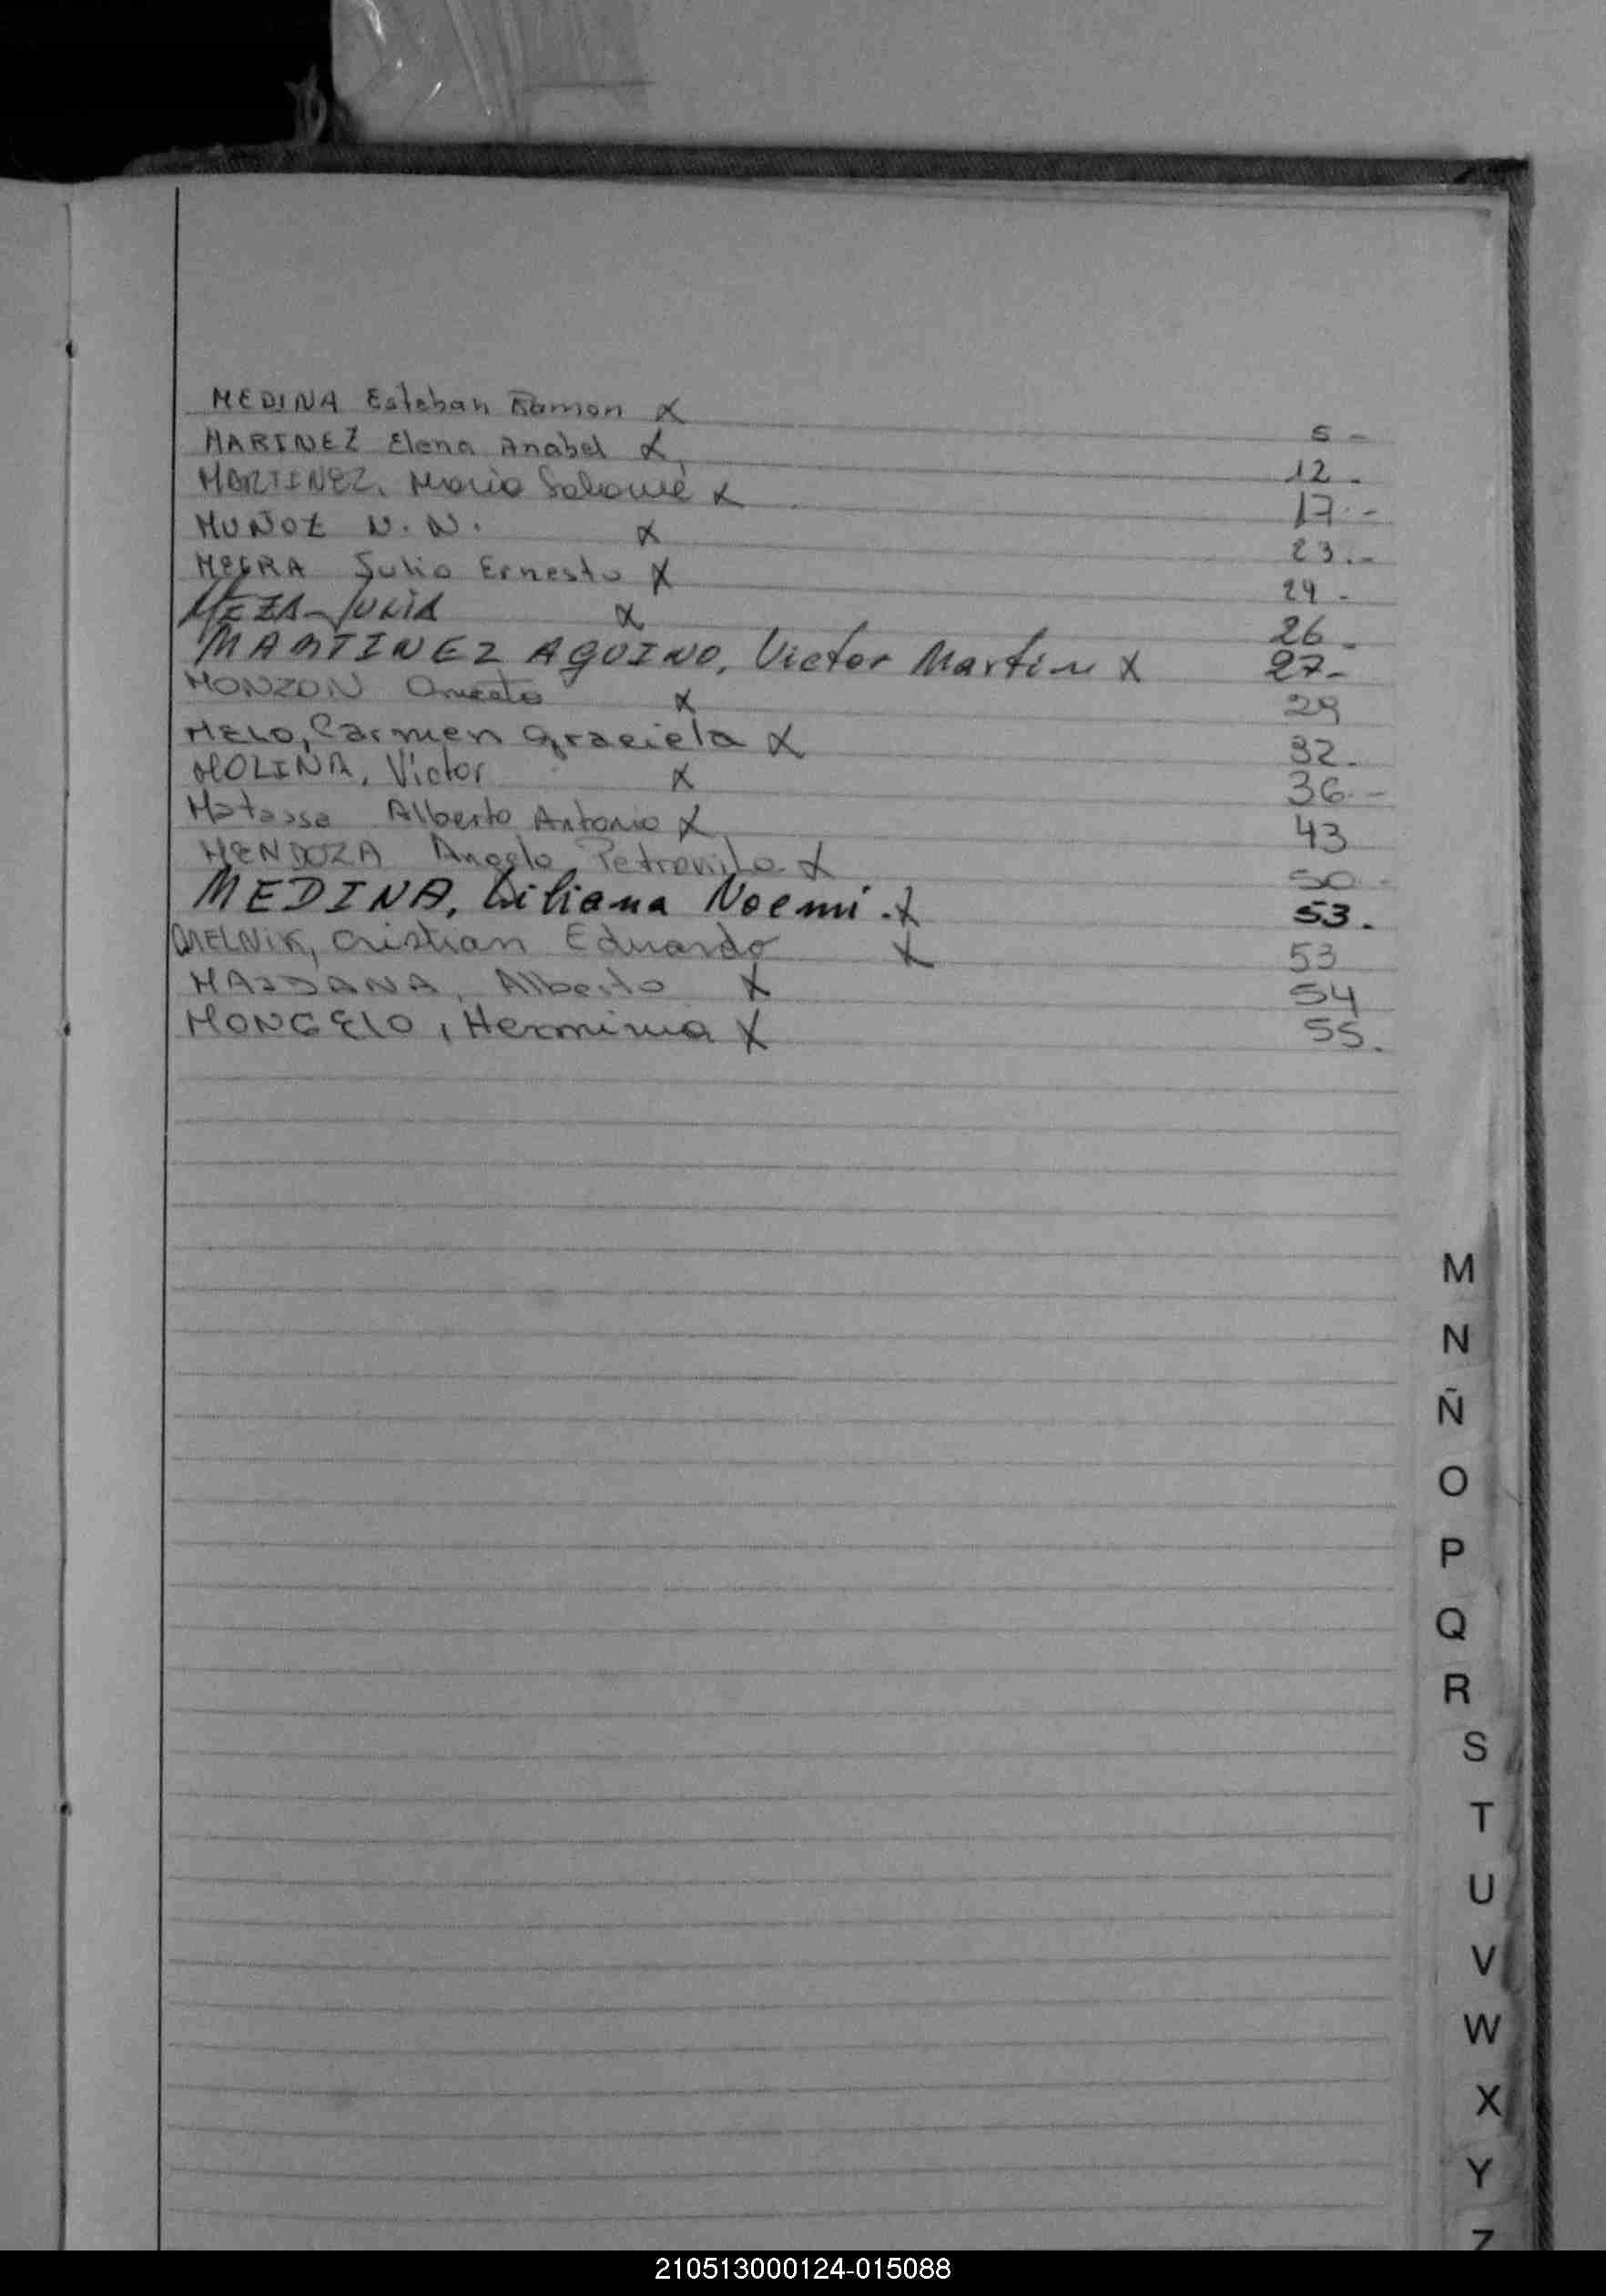 MEDINA Esteban Ramon X 5 -
MARINEZ Elena Anabel X 12 -
MARTINEZ, Maria Salomé X 17 . -
MUÑOZ N. N. X 23 . -
Julio Ernesto X 24 -
MEZA - JULIA X 26 -
MARTINEZ AQUINO, Victor Martin X 27 -
MONZON X 29
MELO, Carmen Graciela X 32 .
MOLINA, Victor X 36 . -
Matasse Alberto Antonio X 43
MENDOZA Angela Petronila X 50 . -
MEDINA, Liliana Noemi . X 53 .
MELNIK, Cristian Eduardo X 53
Alberto X 54
MONGELO, Herminia X 55 .
M
N
Ñ
O
P
Q
R
S
T
U
V
W
X
Y
Z
210513000124-015088